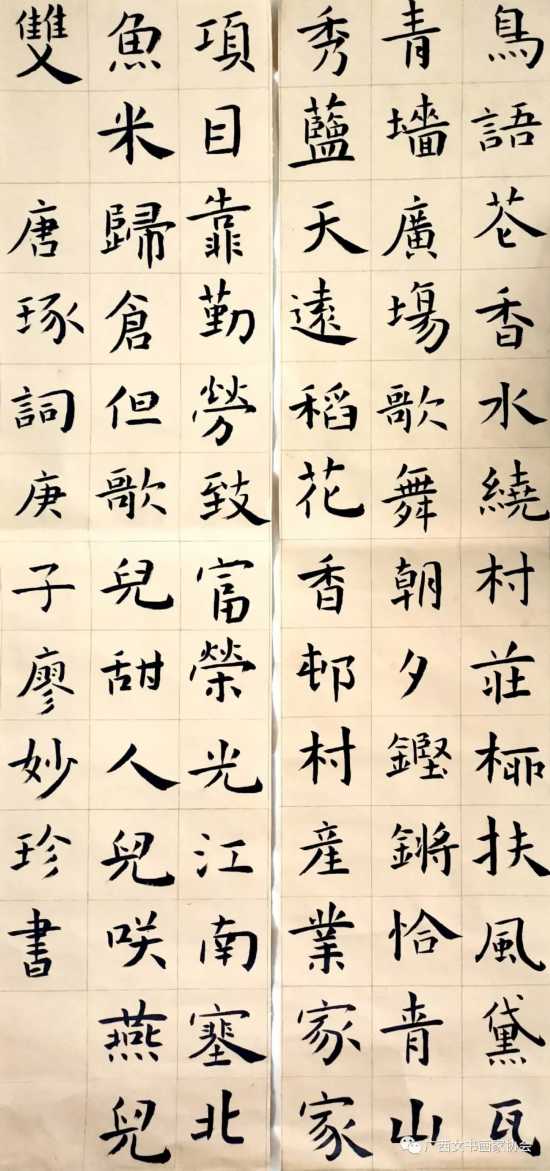 鳥語芲香水繞村莊桺扶風黛瓦
青墻廣場歌舞朝夕鏗鏘恰青山
秀藍天遠稻花香邨村産業家家
項目靠勤勞致富榮光江南塞北
魚米歸倉但歌兒甜人兒咲燕兒
雙
唐琢詞庚子廖妙珍書
广西文书画家协会